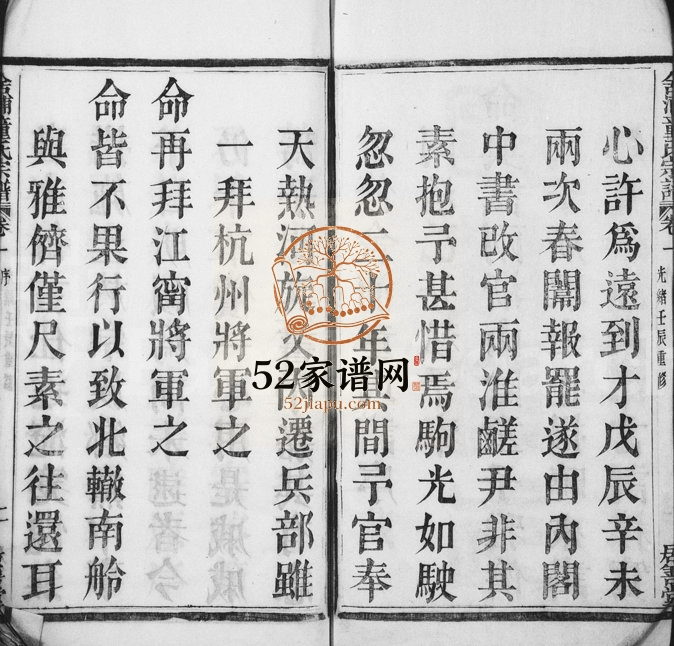 心許爲遠到才戊辰辛未
兩次春闈報罷遂由內閣
中書改官兩淮鹺尹非其
素抱予甚惜焉駒光如駛
忽忽二十年 間予官奉
天熱河旋 遷兵部雖
一拜杭州將軍之
命再拜江甯將軍之
命皆不果行以致北轍南舲
與雅儕僅尺素之往還耳
光緒壬辰重修
童氏宗譜 卷一 序
52家谱网
52jiapu.com